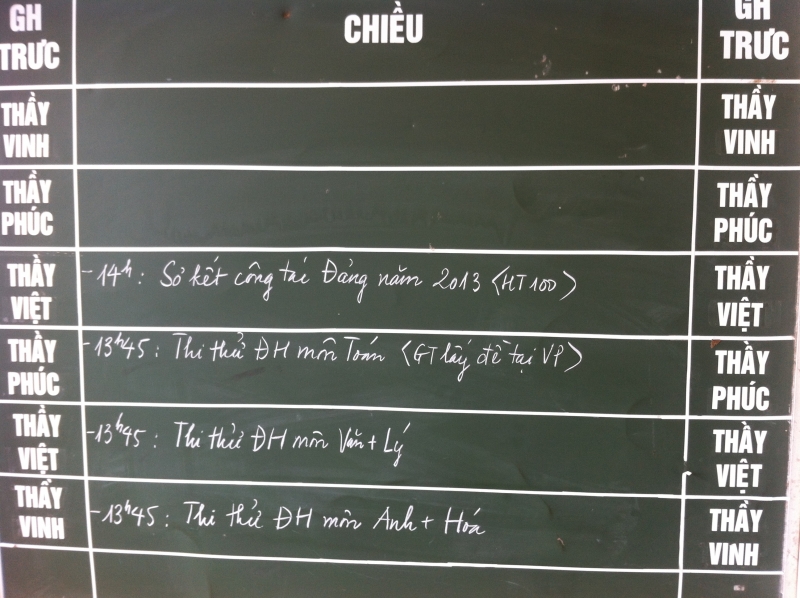 GH TRƯC CHIỀU GH TRƯC
THẦY VINH THẦY VINH
THẦY PHÚC THẦY PHÚC
THẦY VIỆT -14h: Sơ kết công tác Đảng năm 2013 <HT100> THẦY VIỆT
THẦY PHÚC -13h45: Thi thử ĐH môn Toán <GT lấy đề tại VP> THẦY PHÚC
THẦY VIỆT -13h45: Thi thử ĐH môn Văn + Lý THẦY VIỆT
THẦY VINH -13h45: Thi thử ĐH môn Anh + Hóa THẦY VINH